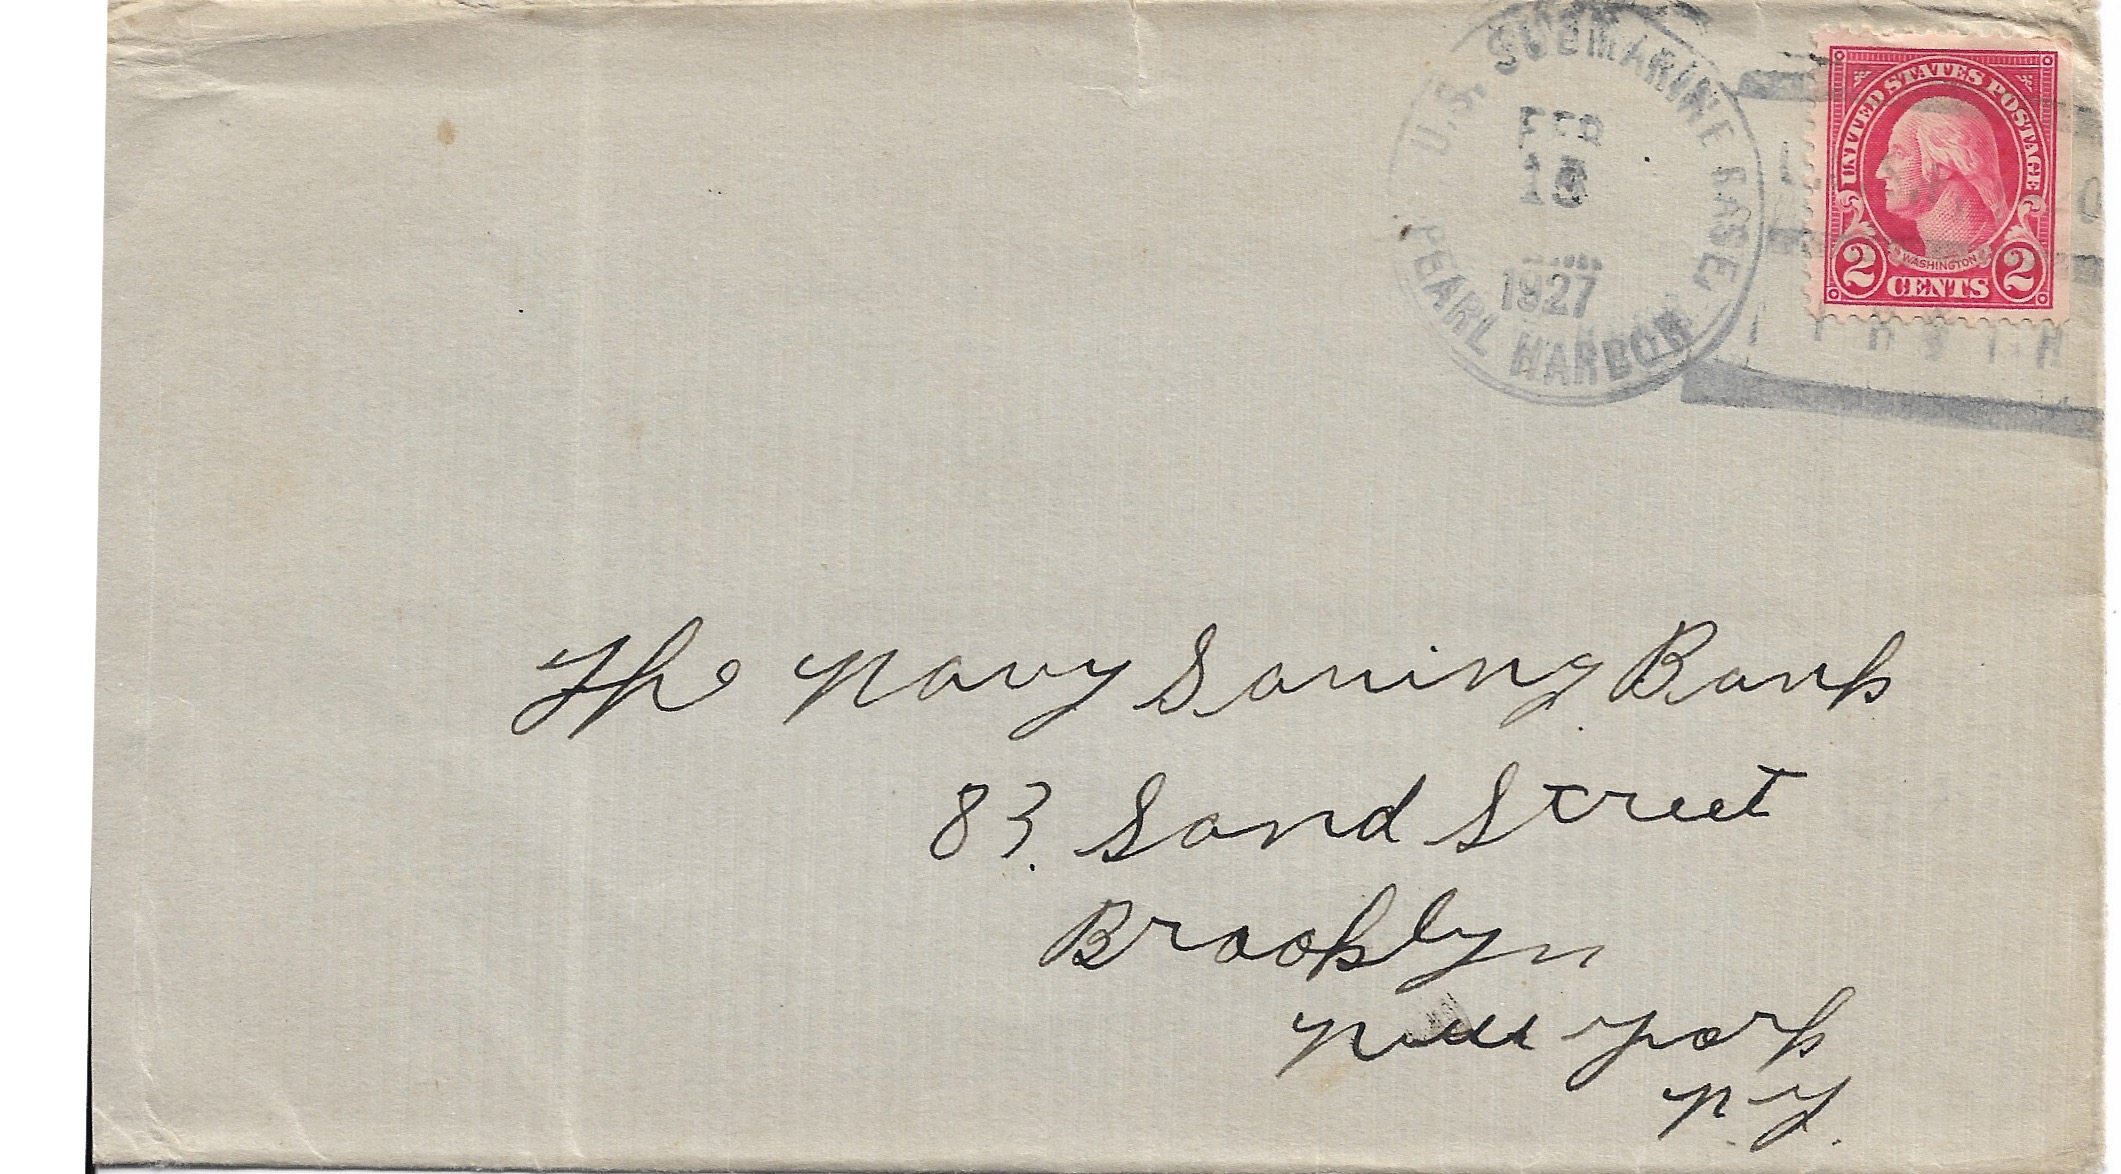 U.S. SUBMARINE BASE
FEB
1927
PEARL HARBOR
UNITED STATES POSTAGE
WASHINGTON
2 CENTS 2
The Navy Saving Bank
83. Sand Street
Brooklyn
New York
N.Y.